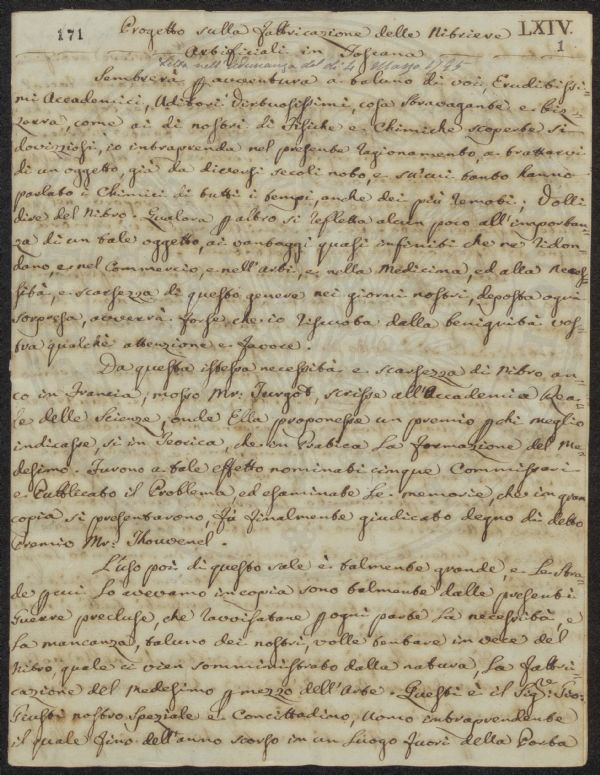 171
LXIV.
1
Progetto sulla Fattricazione delle Nitriere
Artificiali in Toscana
Letta nell'Adunanza del dì 4 Marzo 1795
Sembrerà p avventura a taluno di voi, Eruditissi=
mi Accademici, Aditori Virtuosissimi, cosa stravagante e biz=
zerra, come ai dì nostri di Fisiche e Chimiche scoperte sì
doviziosi, io intraprenda nel presente ragionamento a trattarvi
di un oggetto, già da diversi secoli noto, e su cui tanto hanno
parlato i Chimici di tutti i tempi, anche dei più remoti; Volli
dire del Nitro. Qualora p altro si refletta alcun poco all'importan=
za di un tale oggetto, ai vantaggi quasi infiniti che ne ridon=
dano, e nel Commercio, e nell'Arti, e nella Medicina, ed alla Neces=
sità, e scarsezza di questo genere nei giorni nostri, deposta ogni
sorpresa, avverrà forse che io riscuota dalla benignità vos=
tra qualche attenzione e favore.
Da questa istessa necessità e scarsezza di Nitro an=
co in Francia, mosso Mr. Turgot, scrisse all'Accademia Rea=
le delle Scienze, onde Ella proponesse un premio p chi meglio
indicasse, sì in Teorica, che in Pratica la formazione del Me=
desimo. Furono a tale effetto nominati cinque Commissari
e Pubblicato il Problema, ed esaminate le memorie, che in gran
copia si presentarono, fù finalmente giudicato degno di detto
Premio Mr. Thouvenel.
L'uso poi di questo sale è talmente grande, e le stra=
de p cui lo avevamo in copia sono talmente dalle presenti
Guerre precluse, che ravvisatane p ogni parte la necessità, e
la mancanza, taluno dei nostri, volle tentare in vece del
Nitro, quale ci vien somministrato dalla natura, la fattri=
cazione del Medesimo p mezzo dell'Arte. Questi è il Sigr. Gio:
Giusti nostro Speziale e Concittadino, Uomo intraprendente
il quale fino dell'anno scorso in un Luogo fuori della Porta